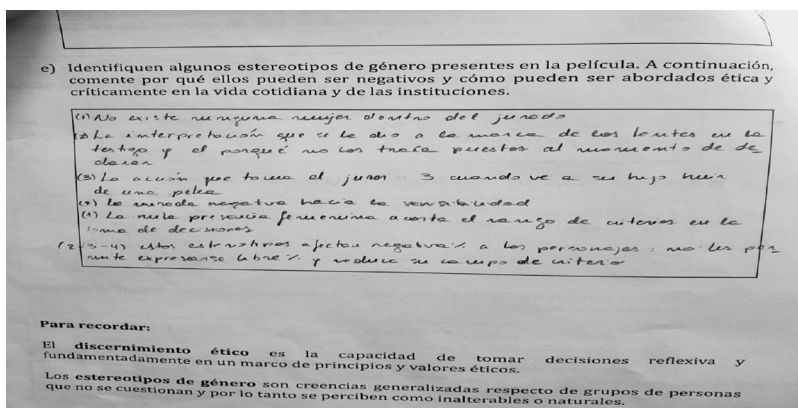 e) Identifiquen algunos estereotipos de género presentes en la película. A continuación,
comente por qué ellos pueden ser negativos y cómo pueden ser abordados ética y
críticamente en la vida cotidiana y de las instituciones.
(1) No existe ninguna mujer dentro del jurado
(2) La interpretación que se le dio a la marca de los lentes en la
testigo y el porqué no los traía puestos al momento de de
clarar
(3) La acción que toma el juror 3 cuando ve a su hijo huir
de una pelea
(4) la mirada negativa hacia la sensibilidad
(1) La nula presencia femenina acorta el rango de criterios en la
toma de decisiones
(2-3-4) estos estereotipos afectan negativa/. a los personajes : no les per
mite expresarse libre/. y reduce su campo de criterio
Para recordar:
El discernimiento ético es la capacidad de tomar decisiones reflexiva y
fundamentadamente en un marco de principios y valores éticos.
Los estereotipos de género son creencias generalizadas respecto de grupos de personas
que no se cuestionan y por lo tanto se perciben como inalterables o naturales.